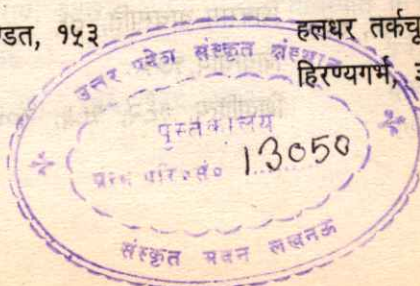 डत, १५३
हलधर तर्कचू
हिरण्यगर्भ,
उत्तर प्रदेश संस्कृत संस्थान
पुस्तकालय
ग्रन्थ परि०सं० 13050
संस्कृत भवन लखनऊ